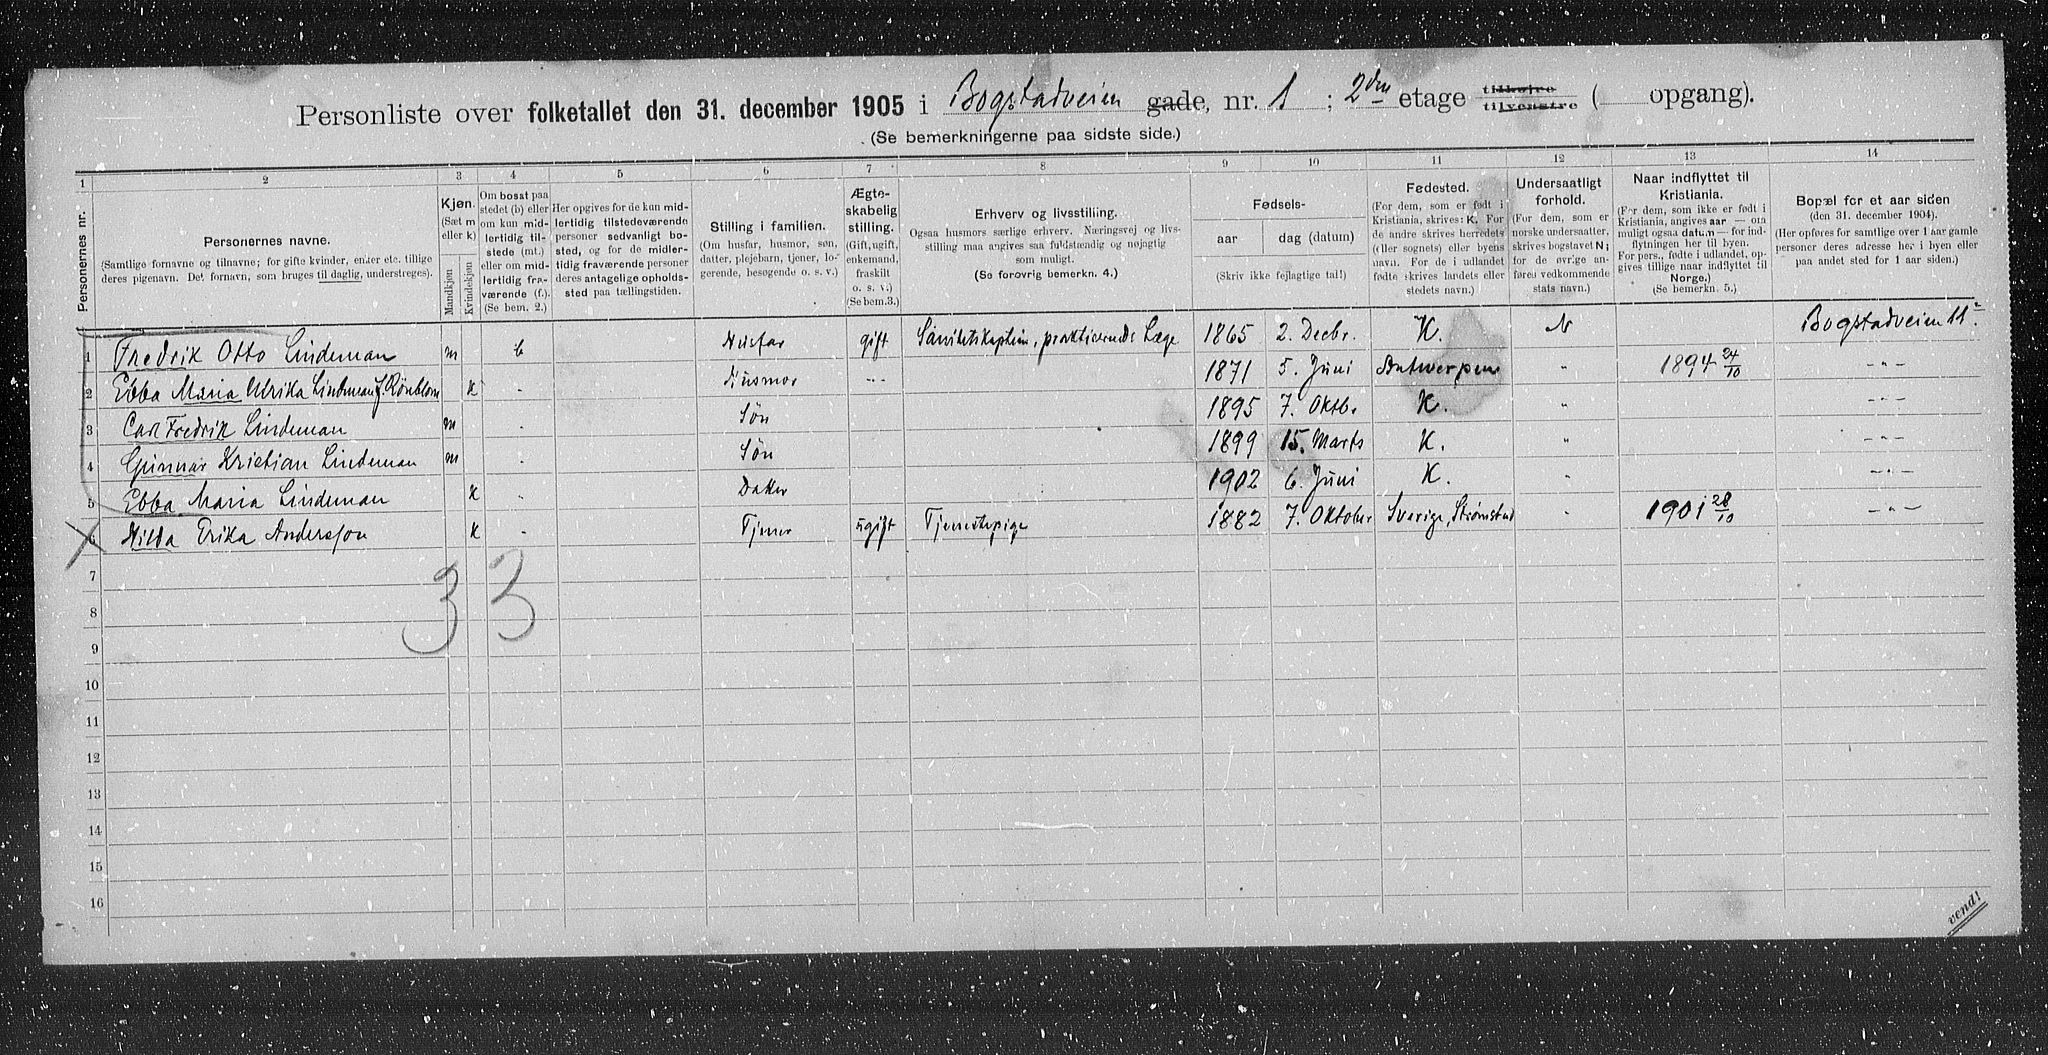 Personliste over folketallet den 31. december 1905 i Bogstadveien gade, nr. 1 ; 2den etage tilhøire tilvenstre ( opgang).
(Se bemerkningerne paa sidste side.)
1 2 3 4 5 6 7 8 9 10 11 12 13 14
Personernes nr.
Personernes navne.
(Samtlige fornavne og tilnavne; for gifte kvinder, enker etc. tillige
deres pigenavn. Det fornavn, som bruges til daglig, understreges).
Kjøn.
(Sæt m
eller k)
Mandkjøn
Kvindekjøn
Om bosat paa
stedet (b) eller
om kun mid-
lertidig til-
stede (mt.)
eller om mid-
lertidig fra-
værende (f.).
(Se bem. 2.)
Her opgives for de kun mid-
lertidig tilstedeværende
personer sedvanlig bo-
sted, og for de midler-
tidig fraværende personer
deres antagelige opholds-
sted paa tællingstiden.
Stilling i familien.
(Om husfar, husmor, søn,
datter, plejebarn, tjener, lo-
gerende, besøgende o. s. v.)
Ægte-
skabelig
stilling.
(Gift, ugift,
enkemand,
fraskilt
o. s. v.)
(Se bem.3.)
Erhverv og livsstilling.
Ogsaa husmors særlige erhverv. Næringsvej og livs-
stilling maa angives saa fuldstændig og nøjagtig
som muligt.
(Se forøvrig bemerkn. 4.)
Fødsels-
aar dag (datum)
(Skriv ikke fejlagtige tal!)
Fødested.
(For dem, som er født i
Kristiania, skrives: K. For
de andre skrives herredets
(eller sognets) eller byens
navn. For de i udlandet
fødte skrives landets eller
stedets navn.)
Undersaatligt
forhold.
(For dem, som er
norske undersaatter,
skrives bogstavet N;
for de øvrige an-
føres vedkommende
stats navn.)
Naar indflyttet til
Kristiania.
(For dem, som ikke er født i
Kristiania, angives aar — om
muligt ogsaa datum — for ind-
flytningen her til byen.
For pers., fødte i udlandet, op-
gives tillige naar indflyttet til
Norge.)
(Se bemerkn. 5.)
Bopæl for et aar siden
(den 31. december 1904).
(Her opføres for samtlige over 1 aar gamle
personer deres adresse her i byen eller
paa andet sted for 1 aar siden.)
1 Fredrik Otto Lindeman m b Husfar gift Sanitetskaptein, praktiserende Læge 1865 2. Decbr. K. N Bogstadveien 11 2
2 Ebba Maria Ulrika Lindeman f. Rönblom K - Husmor -"- 1871 5. Juni Antwerpen " 1894 24/10 -"-
3 Carl Fredrik Lindeman m - Søn 1895 7. Oktb. K. " -"-
4 Gunnar Kristian Lindeman m - Søn 1899 15. Marts K. " -"-
5 Ebba Maria Lindeman K - Datter 1902 6. Juni K. " -"-
6 Hilda Erika Andersson K - Tjener ugift Tjenestepige 1882 7. Oktober Sverige, Strömstad " 1901 28/10 -"-
7
3 3
8
9
10
11
12
13
14
15
16
vend!